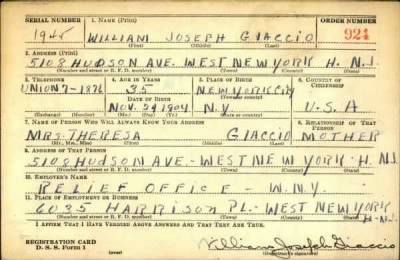 SERIAL NUMBER 1. NAME (Print) ORDER NUMBER
1945 WILLIAM JOSEPH GIACCIO 924
(First) (Middle) (Last)
2. ADDRESS (Print)
5108 HUDSON AVE. WEST NEW YORK H. N.J.
(Number and street or R. F. D. number) (Town) (County) (State)
3. TELEPHONE 4. AGE IN YEARS 5. PLACE OF BIRTH 6. COUNTRY OF CITIZENSHIP
UNION 7-1876 35 NEW YORK CITY
DATE OF BIRTH (Town or county)
NOV. 29 1904 N.Y. U.S.A
(Exchange) (Number) (Mo.) (Day) (Yr.) (State or country)
7. NAME OF PERSON WHO WILL ALWAYS KNOW YOUR ADDRESS 8. RELATIONSHIP OF THAT PERSON
MRS. THERESA GIACCIO MOTHER
(Mr., Mrs., Miss) (First) (Middle) (Last)
9. ADDRESS OF THAT PERSON
5108 HUDSON AVE.-WEST NEW YORK-H. N.J.
(Number and street or R. F. D. number) (Town) (County) (State)
10. EMPLOYER'S NAME
RELIEF OFFICE - W.N.Y.
11. PLACE OF EMPLOYMENT OR BUSINESS
6035 HARRISON PL.-WEST NEW YORK H-N.J.
(Number and street or R. F. D. number) (Town) (County) (State)
I AFFIRM THAT I HAVE VERIFIED ABOVE ANSWERS AND THAT THEY ARE TRUE.
REGISTRATION CARD
D. S. S. Form 1 (over) William Joseph Giaccio